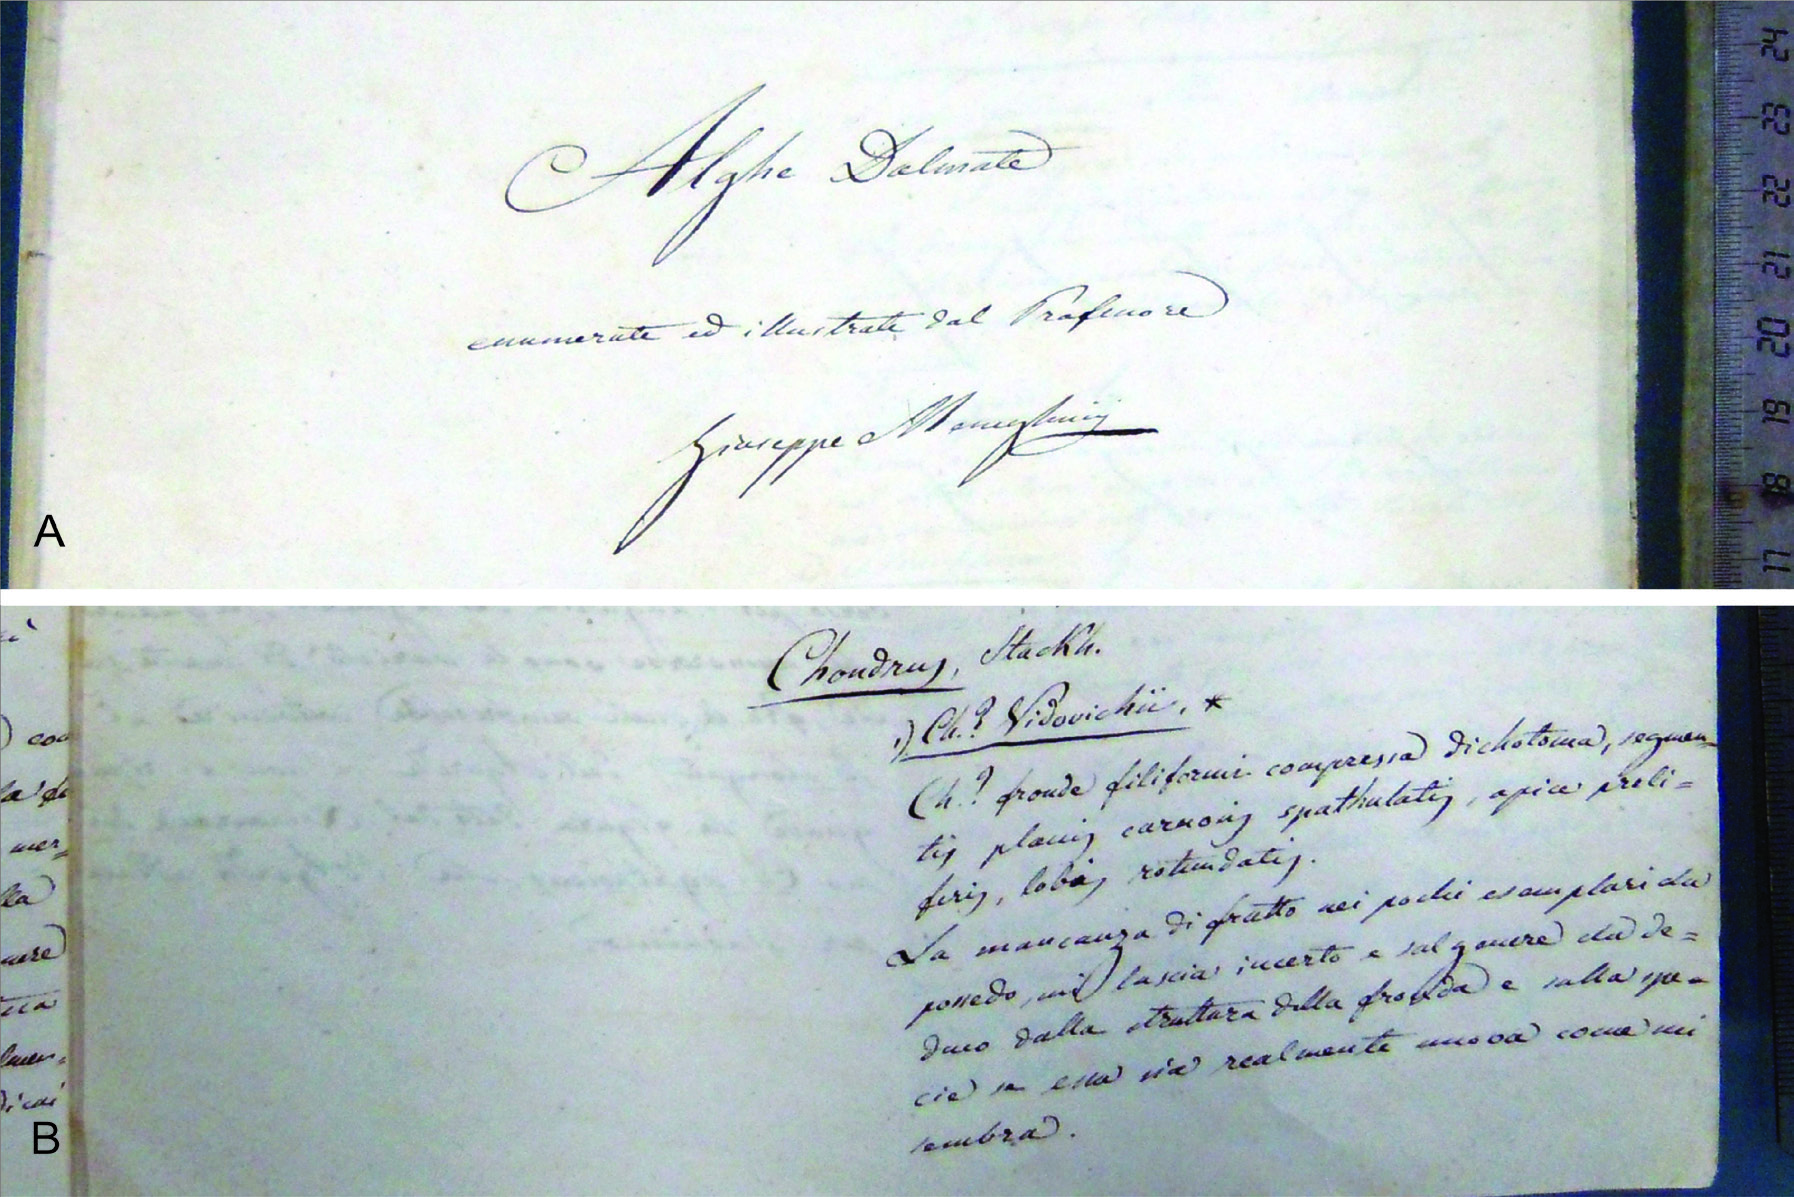 Alghe Dalmate
enumerate ed illustrate dal Professore
Giuseppe Meneghinij
A
24
23
22
21
20
19
18
17
Chondrus, Stackh.
1) Ch.? Vidovichii. *
Ch.? fronde filiformi compressa dichotoma, segmen-
tis planis carnosis spathulatis, apice proli=
feris, lobis rotundatis.
La mancanza di frutto nei pochi esemplari che
possedo, mi lascia incerto e sul genere che de=
duco dalla struttura della fronda e sulla spe=
cie se essa sia realmente nuova come mi
sembra.
coa
la
mer=
lla
nere
dicai
B